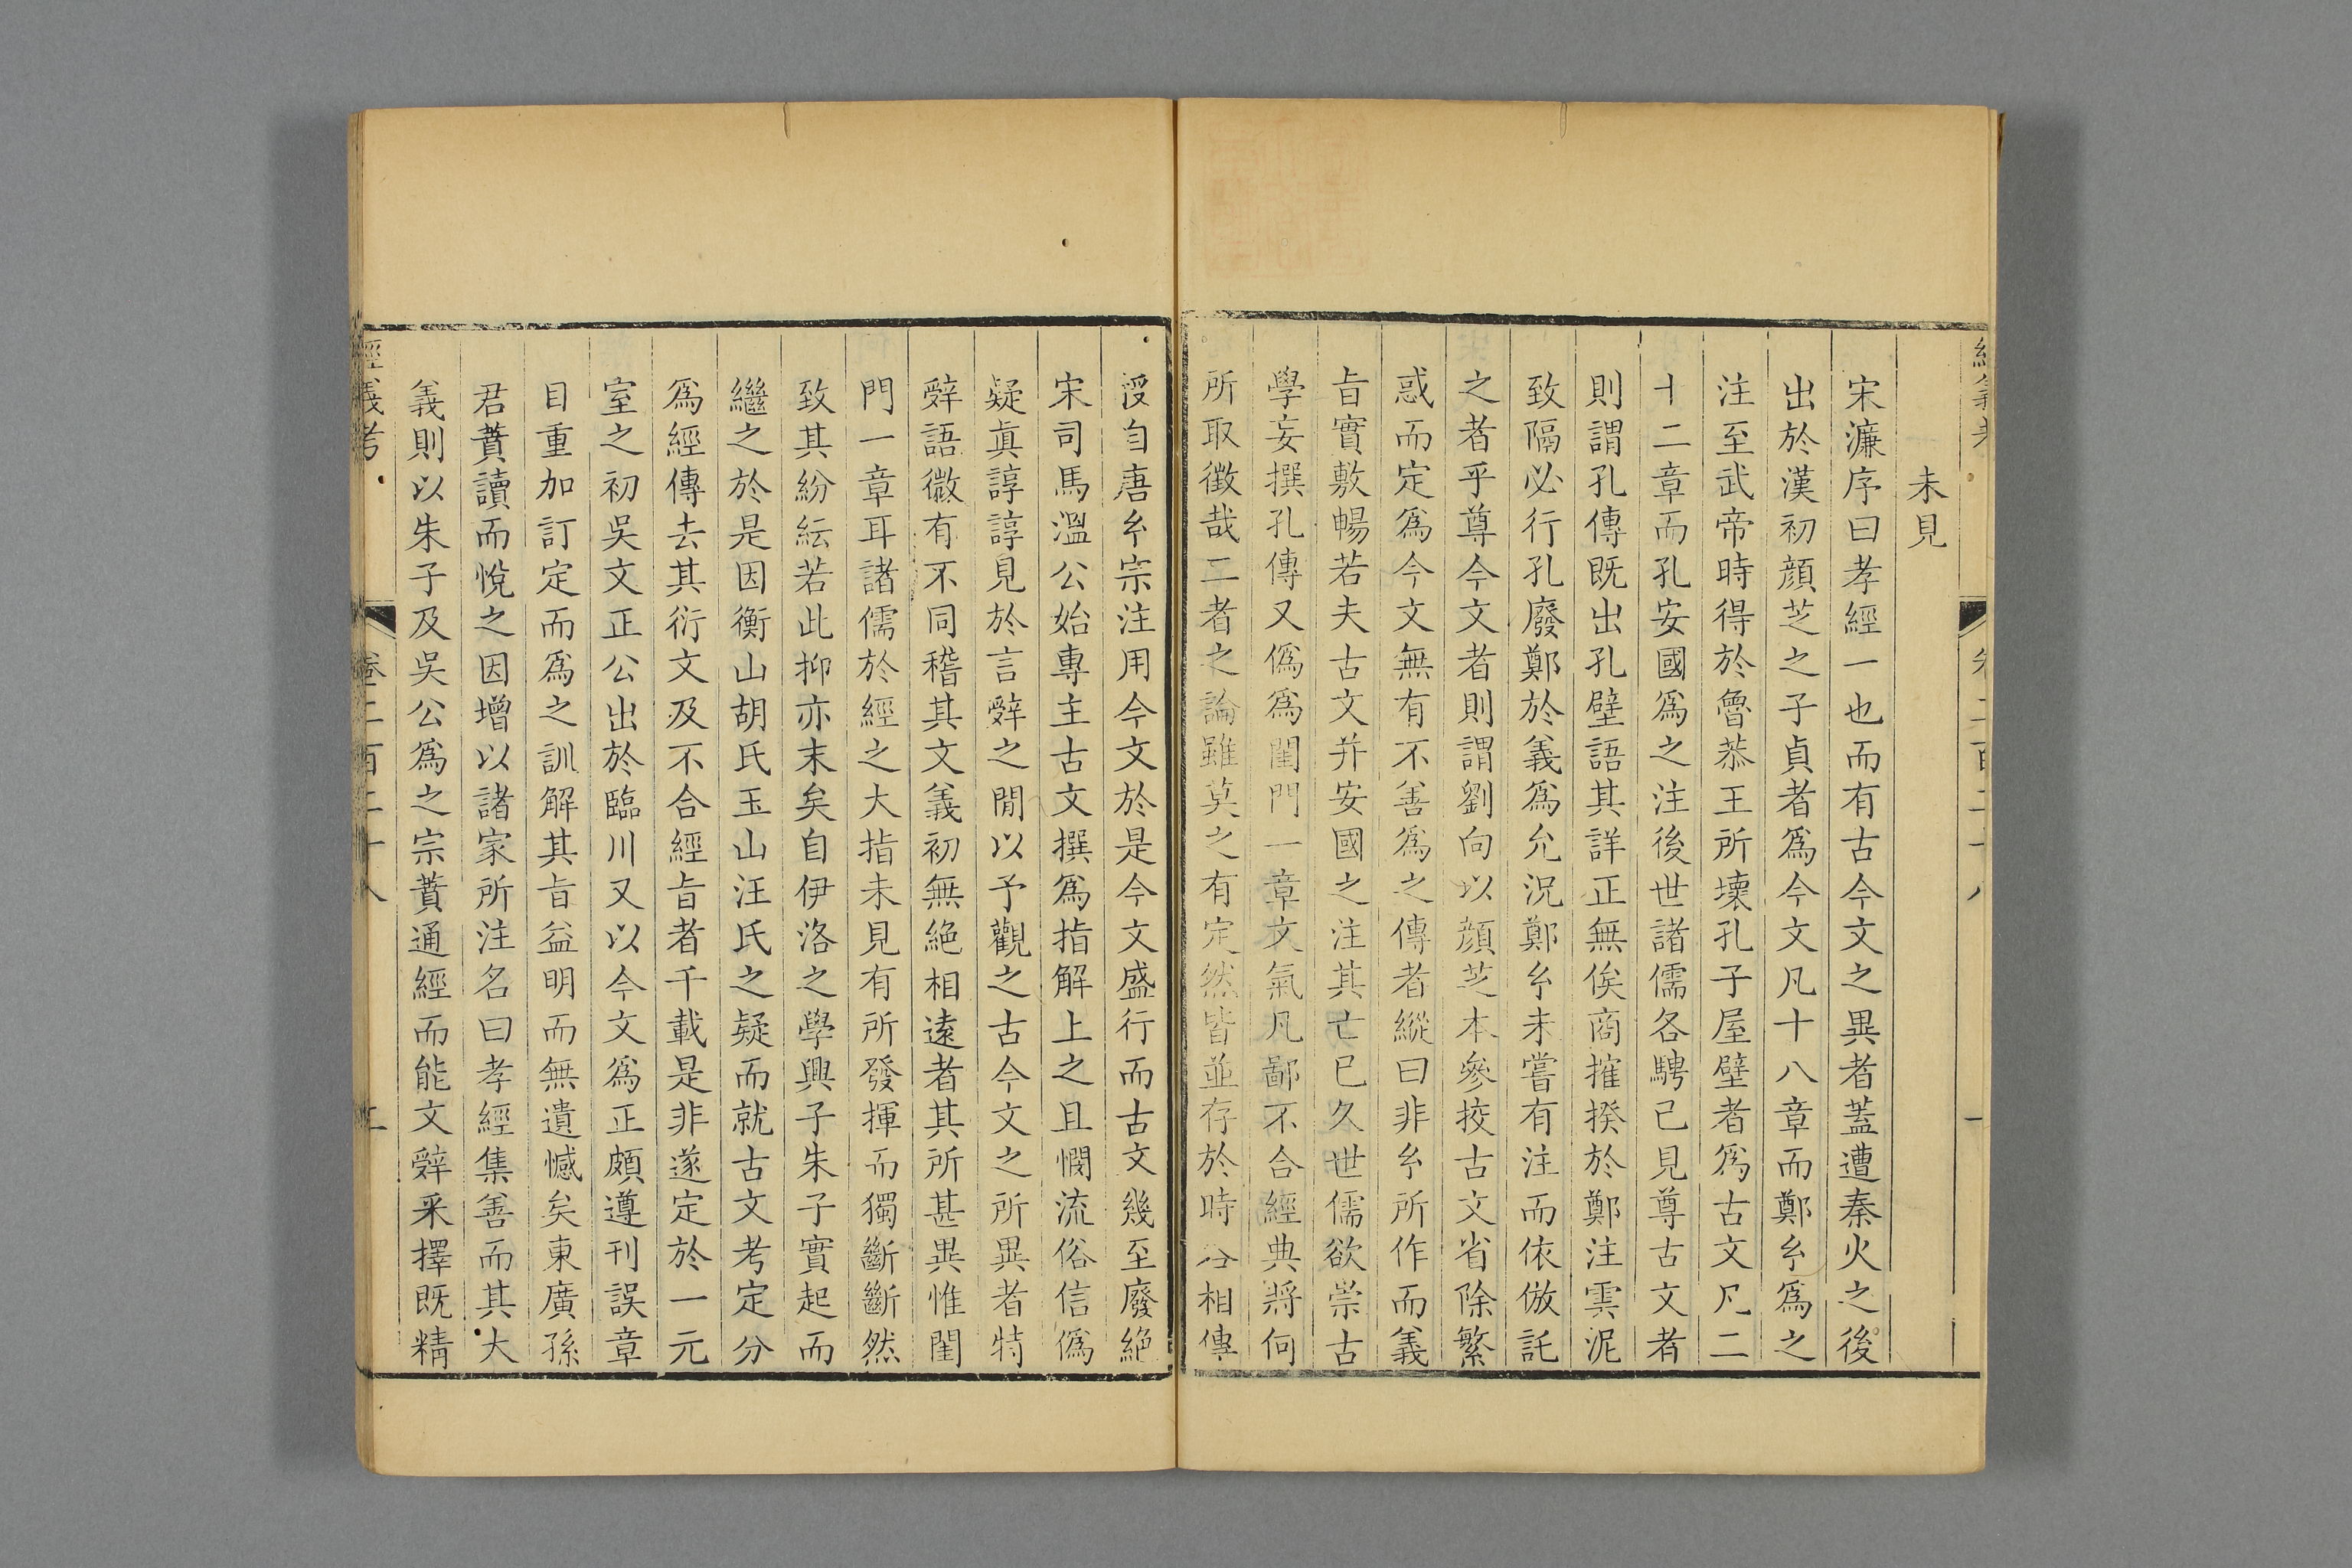 未見
宋濂序曰孝經一也而有古今文之異者蓋遭秦火之後
出於漢初顔芝之子貞者爲今文凡十八章而鄭𢆯爲之
注至武帝時得於魯恭王所壞孔子屋壁者爲古文凡二
十二章而孔安國爲之注後世諸儒各騁己見尊古文者
則謂孔傳既出孔壁語其詳正無俟商搉揆於鄭注雲泥
致隔必行孔廢鄭於義爲允況鄭𢆯未嘗有注而依倣託
之者乎尊今文者則謂劉向以顔芝本參挍古文省除繁
惑而定爲今文無有不善爲之傳者縱曰非𢆯所作而義
旨實敷暢若夫古文并安國之注其亡已久世儒欲崇古
學妄撰孔傳又僞爲閨門一章文氣凡鄙不合經典將何
所取徵哉二者之論雖莫之有定然皆並存於時各相傳
授自唐𢆯宗注用今文於是今文盛行而古文幾至廢絶
宋司馬溫公始專主古文撰爲指解上之且憫流俗信僞
疑眞諄諄見於言辭之閒以予觀之古今文之所異者特
辭語微有不同稽其文義初無絶相遠者其所甚異惟閨
門一章耳諸儒於經之大指未見有所發揮而獨斷斷然
致其紛紜若此抑亦末矣自伊洛之學興子朱子實起而
繼之於是因衡山胡氏玉山汪氏之疑而就古文考定分
爲經傳去其衍文及不合經旨者千載是非遂定於一元
室之初吳文正公出於臨川又以今文爲正頗遵刊誤章
目重加訂定而爲之訓解其旨益明而無遺憾矣東廣孫
君蕡讀而悅之因增以諸家所注名曰孝經集善而其大
義則以朱子及吳公爲之宗蕡通經而能文辭采擇既精
經義考 卷二百二十八